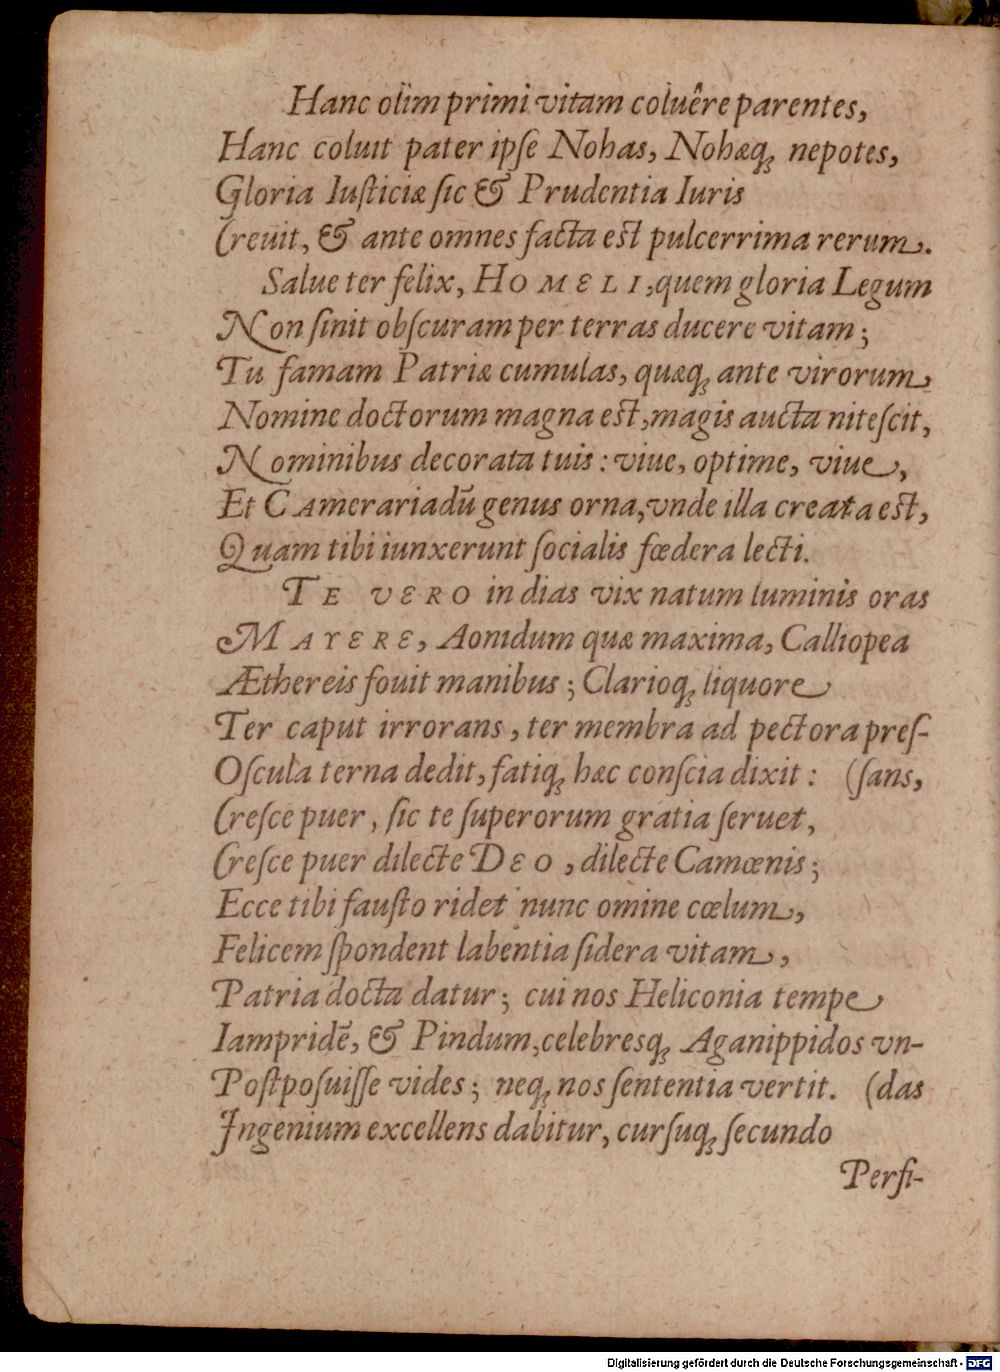 Hanc olim primi vitam coluêre parentes,
Hanc coluit pater ipſe Nohas, Nohæq́ꝫ nepotes,
Gloria Iuſticiæ ſic & Prudentia Iuris
Creuit, & ante omnes facta est pulcerrima rerum.
Salue ter felix, HOMELI, quem gloria Legum
Non ſinit obſcuram per terras ducere vitam;
Tu famam Patriæ cumulas, quæq́ꝫ ante virorum,
Nomine doctorum magna est, magis aucta niteſcit,
Nominibus decorata tuis: viue, optime, viue,
Et CAmerariadũ genus orna, vnde illa creata est,
Quam tibi iunxerunt ſocialis fœdera lecti.
TE VERO in dias vix natum luminis oras
MAYERE, Aonidum quæ maxima, Calliopea
Æthereis fouit manibus; Clarioq́ꝫ liquore
Ter caput irrorans, ter membra ad pectora preſ-
Oſcula terna dedit, fatiq́ꝫ hæc conſcia dixit: (ſans,
Creſce puer, ſic te ſuperorum gratia ſeruet,
Creſce puer dilecte DEO, dilecte Camœnis;
Ecce tibi fauſto ridet nunc omine cœlum,
Felicem ſpondent labentia ſidera vitam,
Patria docta datur; cui nos Heliconia tempe
Iampridẽ, & Pindum, celebresq́ꝫ Aganippidos vn-
Poſtpoſuiſſe vides; neq́ꝫ nos ſententia vertit. (das
Ingenium excellens dabitur, curſuq́ꝫ ſecundo
Perſi-
Digitalisierung gefördert durch die Deutsche Forschungsgemeinschaft - DFG